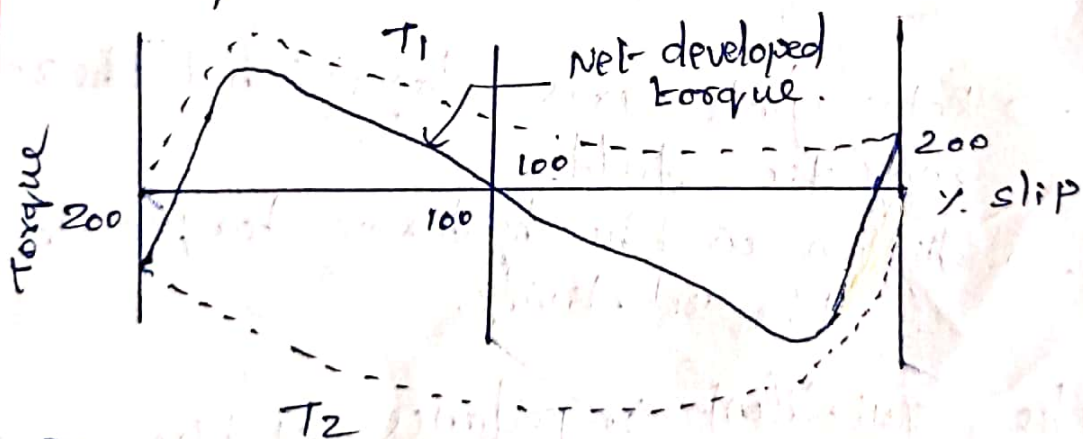 T1
Net-developed
torque.
Torque
200
100
100
200
% slip
T2